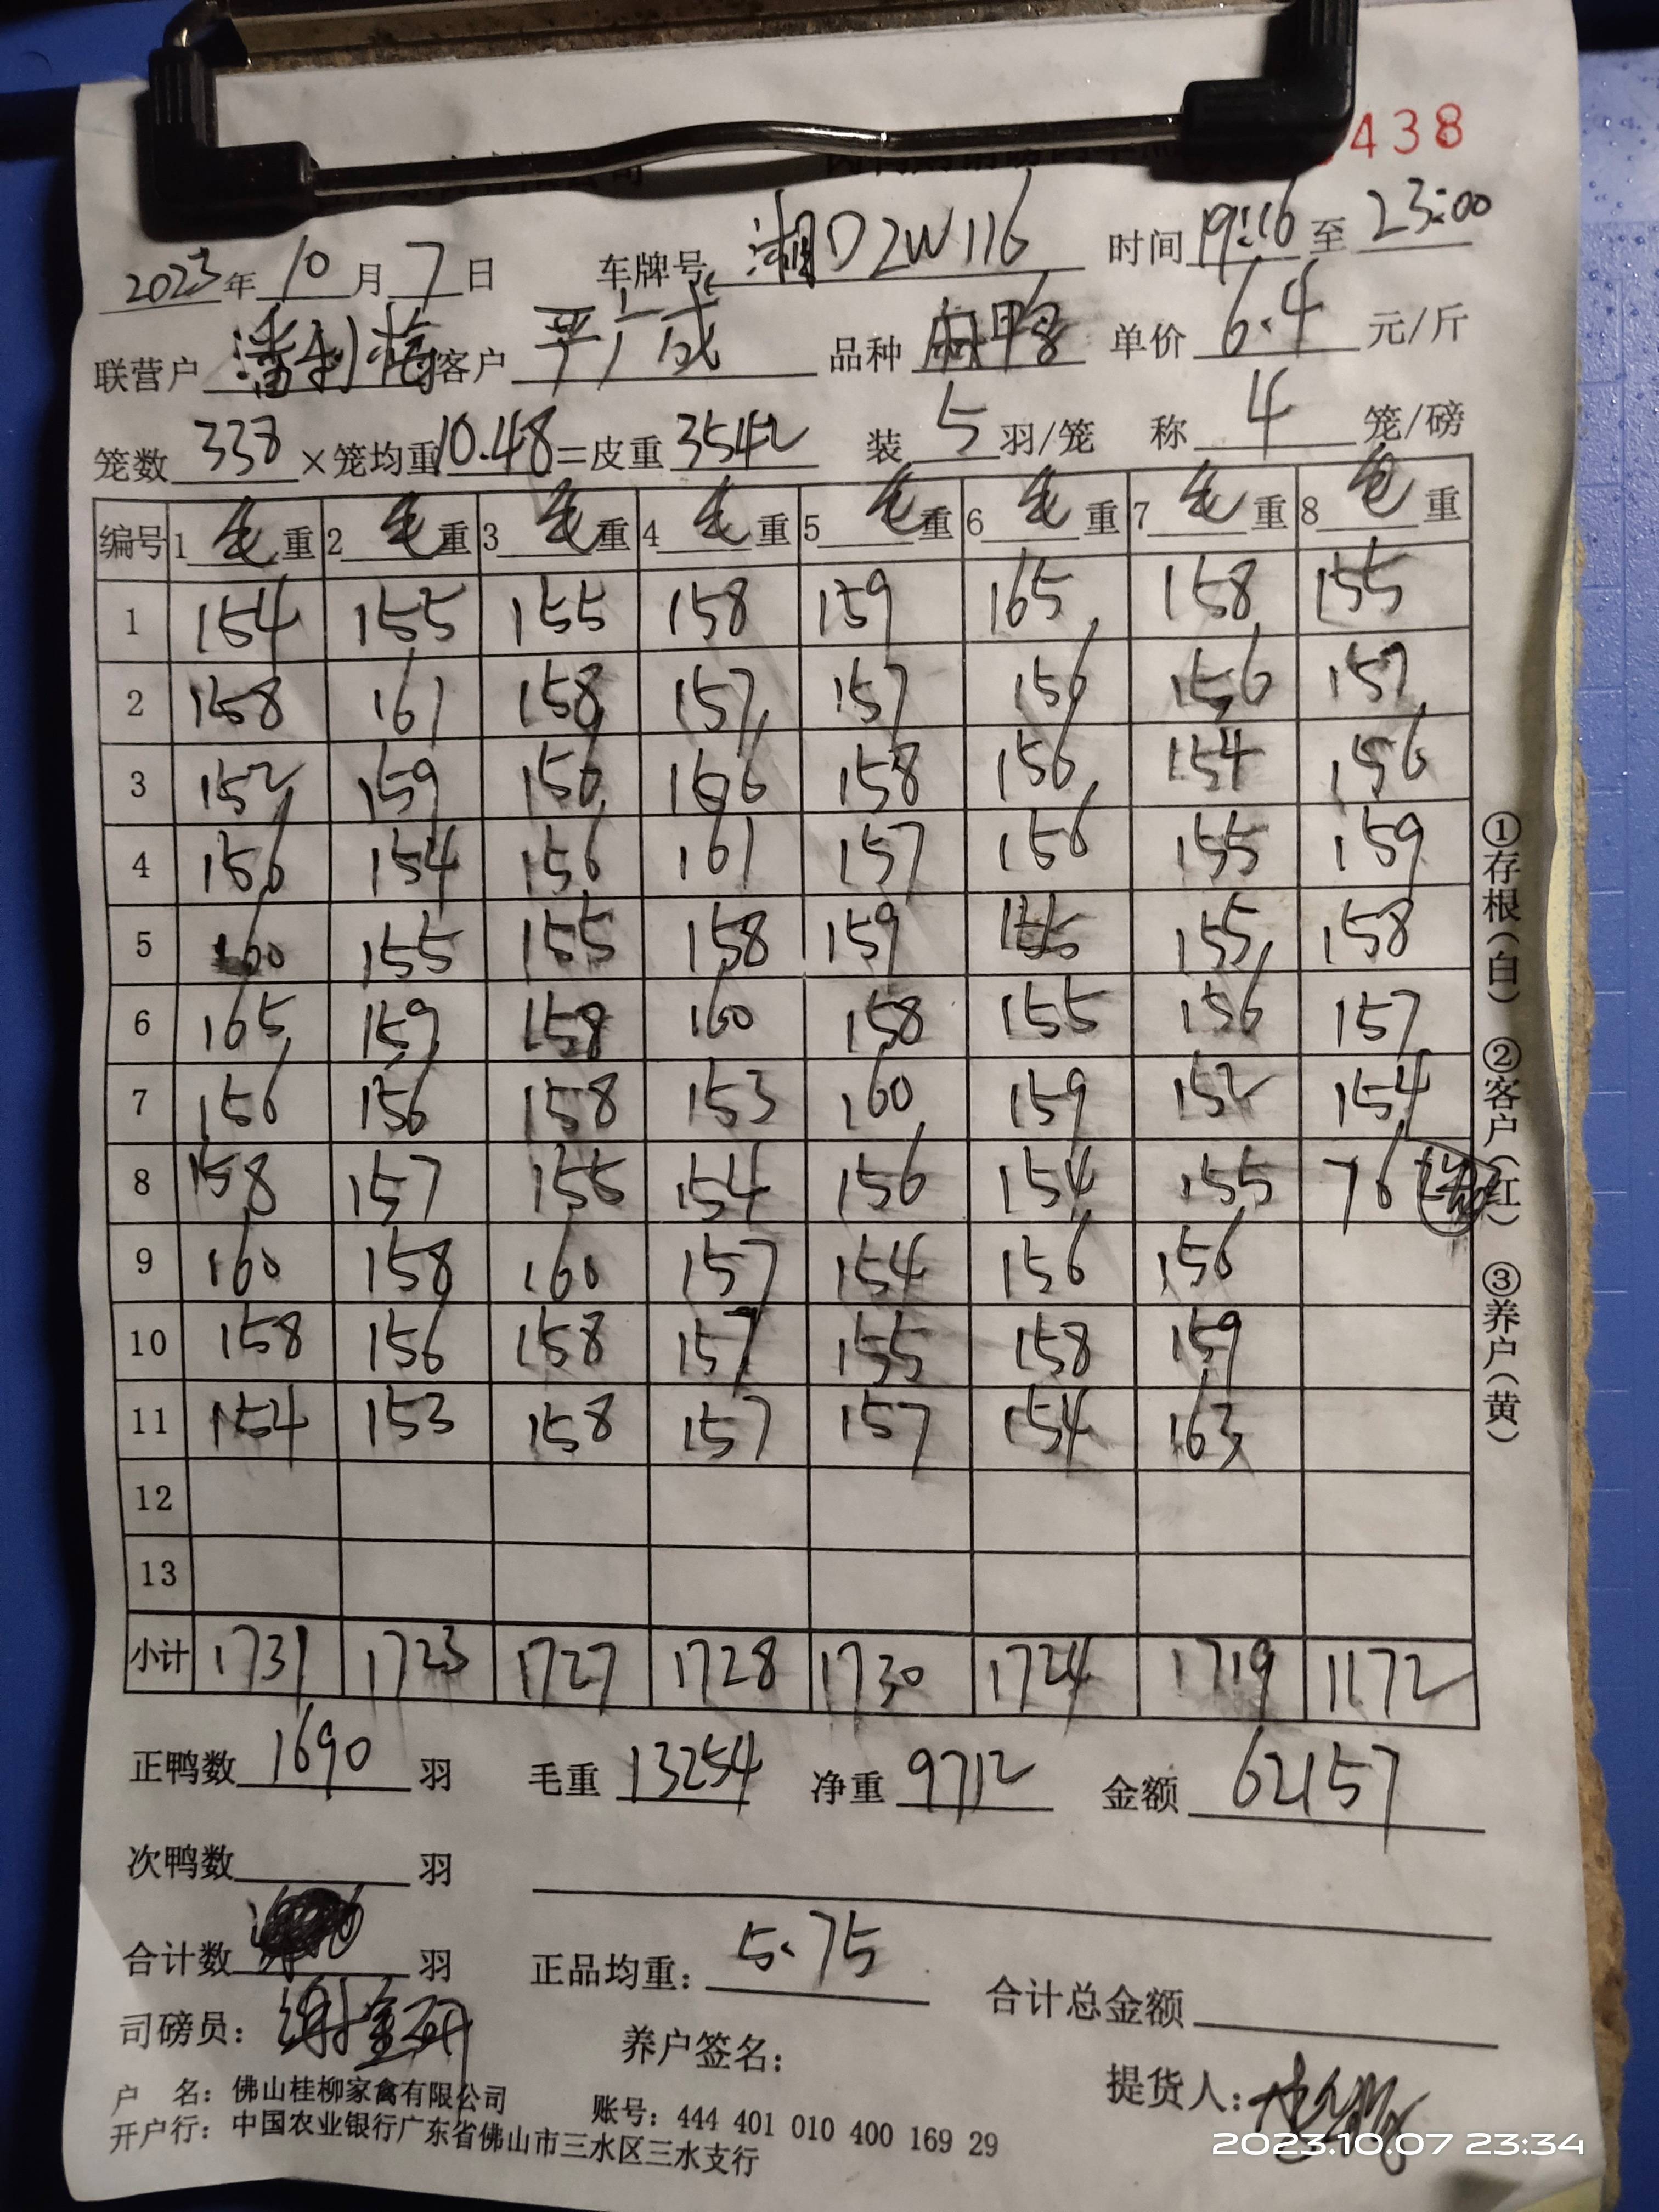 438
2023年10月7日 车牌号 湘D2W116 时间19:16至23:00
联营户 潘利梅 客户 严广成 品种 麻鸭 单价 6.4 元/斤
笼数 338 ×笼均重10.48=皮重3542 装 5 羽/笼 称 4 笼/磅
编号 1 毛 重 2 毛 重 3 毛 重 4 毛 重 5 毛 重 6 毛 重 7 毛 重 8 毛 重
1 154 155 155 158 159 165 158 155
2 158 161 158 157 157 156 156 157
3 152 159 156 156 158 156 154 156
4 156 154 156 161 157 156 155 159
5 160 155 155 158 159 155 155 158
6 165 159 158 160 158 155 156 157
7 156 156 158 153 160 159 152 154
8 158 157 155 154 156 154 155 76
9 160 158 160 157 154 156 156
10 158 156 158 157 155 158 159
11 154 153 158 157 157 154 163
12
13
小计 1731 1723 1727 1728 1730 1724 1719 1172
正鸭数 1690 羽 毛重 13254 净重 9712 金额 62157
次鸭数 羽
合计数 羽 正品均重: 5.75 合计总金额
司磅员: 养户签名: 提货人:
户 名: 佛山桂柳家禽有限公司 账号: 444 401 010 400 169 29
开户行: 中国农业银行广东省佛山市三水区三水支行
①存根(白) ②客户(红) ③养户(黄)
2023.10.07 23:34